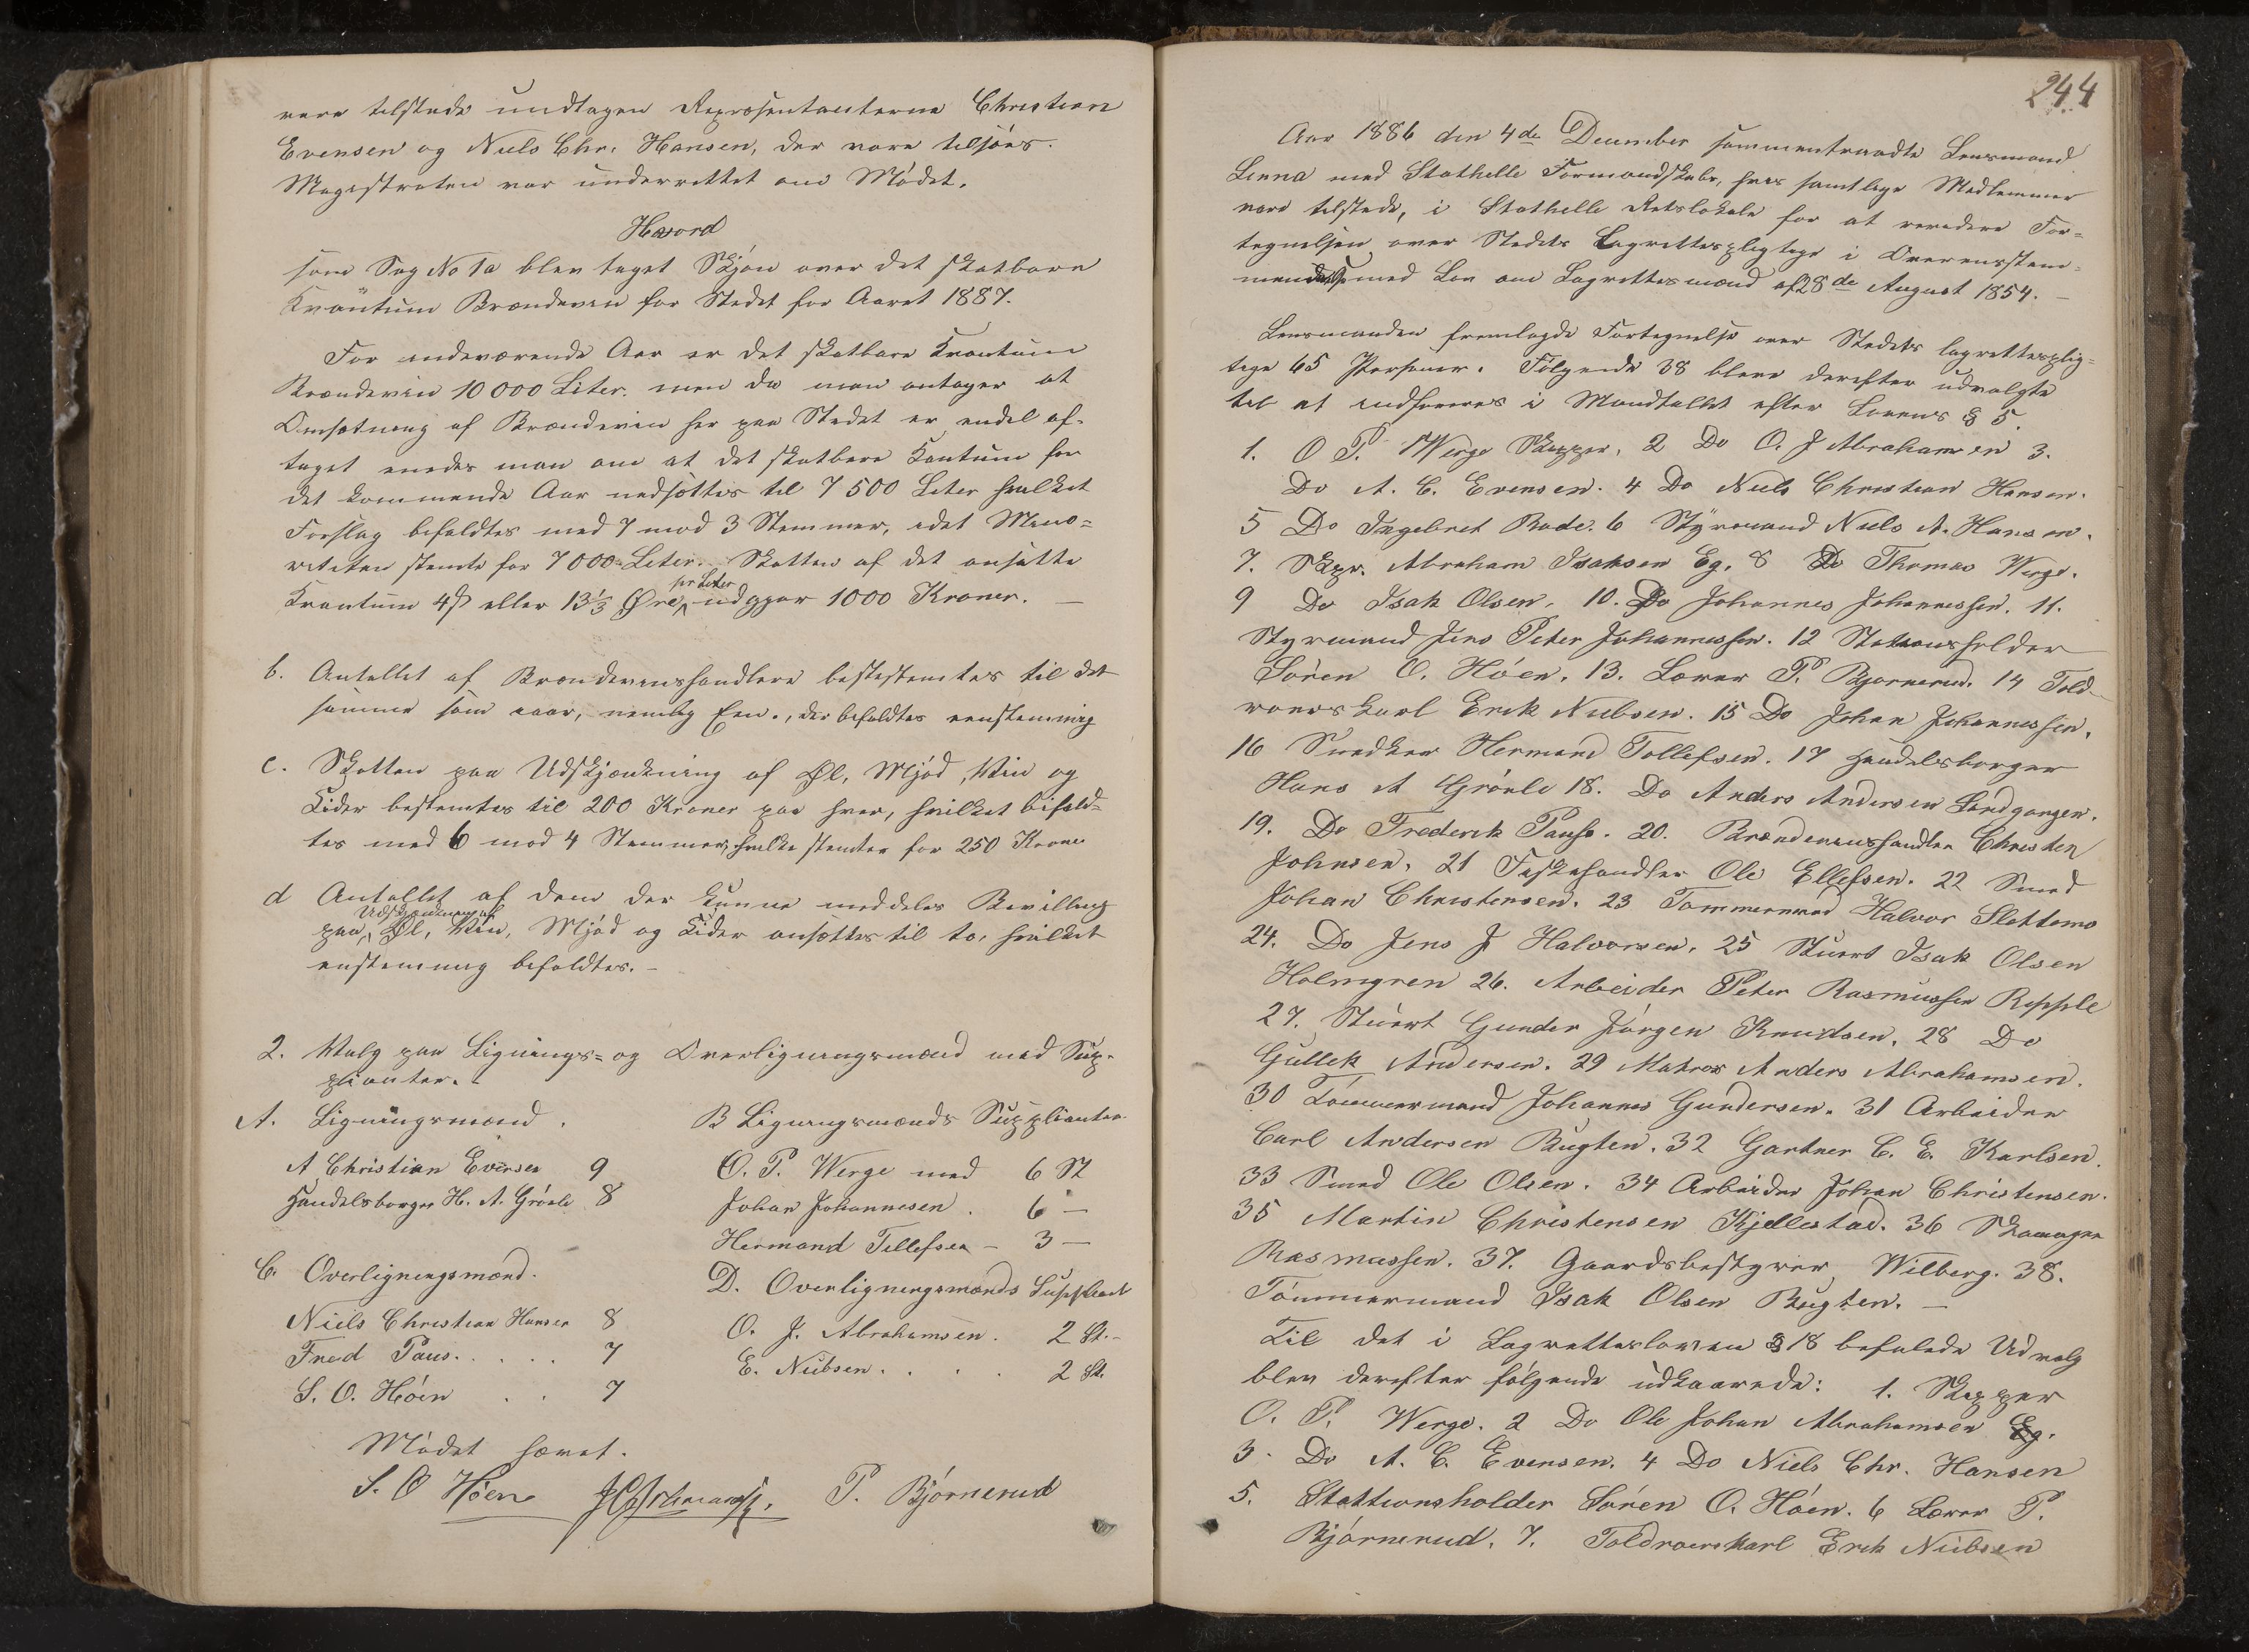 vare tilstede undtagen Repræsentanterne Christian
Evensen og Niels Chr. Hansen, der vare tilsjøes.
Magistraten var underrettet om Mödet.
Hvorved
som Sag No 1a blev taget Skjøn over det skatbare
Kvantum Brændevin for Stedet for Aaret 1887.
For indeværende Aar er det skatbare Kvantum
Brændevin 10000 Liter. men da man antager at
Omsætning af Brændevin her paa Stedet er endel af-
taget enedes man om at det skatbare Kvantum for
det kommende Aar nedsættes til 7500 Liter hvilket
Forslag bifaldtes med 7 mod 3 Stemmer, idet Mino=
riteten stemte for 7000 Liter. Skatten af det ansatte
Kvantum 4ß eller 13⅓ Øre pr Liter udgjør 1000 Kroner. —
b. Antallet af Brændevinshandlere bestestemtes til det
samme som iaar, nemlig Een., der bifaldtes eenstemmig
c. Skatten paa Udskjænkning af Øl, Mjød, Vin og
Cider bestemtes til 200 Kroner paa hver, hvilket bifald=
tes med 6 mod 4 Stemmer, hvilke stemte for 250 Kroner
d Antallet af dem der kunne meddeles Bevilling
paa Udskjænkning af Øl, Vin, Mjød og Cider ansættes til to, hvilket
enstemmig bifaldtes. —
2. Valg paa Lignings= og Overligningsmænd med Sup-
pleanter.
A. Ligningsmænd.
A Christian Evensen 9
Handelsborger H. A. Grönli 8
B Ligningsmænds Suppleanter
O. P. Werge med 6 St
Johan Johannesen. 6 —
Hermand Tellefsen — 3 —
C. Overligningsmænd.
Niels Christian Hansen 8
Fred Paus. . . . . 7
S. O. Höen . . 7
D. Overligningsmænds Suppleant
O. J. Abrahamsen. 2 St. —
E. Nielsen. . . . 2 St.
Mödet hævet.
S. O Höen P. Björnerud
244
Aar 1886 den 4de December sammentraadte Lensmand
Linna med Stathelle Formandskab, hvis samtlige Medlemmer
vare tilstede, i Stathelle Retslokale for at revidere For=
tegnelsen over Stedets Lagrettespligtige i Overensstem=
melse med Lov om Lagrettesmænd af 28de August 1854. —
Lensmanden fremlagde Fortegnelse over Stedets lagrettesplig=
tige 65 Personer. Følgende 38 bleve derefter udvalgte
til at indføres i Mandtallet efter Lovens § 5.
1. O P. Werge Skipper, 2 Do O. J Abrahamsen 3.
Do A. C. Evensen. 4 Do Niels Christian Hansen.
5 Do Ingebret Bode. 6 Styrmand Niels A. Hansen.
7. Skpr. Abraham Isaksen Eg. 8 Do Thomas Werge.
9 Do Isak Olsen. 10. Do Johannes Johannessen. 11.
Styrmand Jens Peter Johannessen. 12 Stationsholder
Sören O. Höen. 13. Lærer P. Bjørnerud. 14 Told-
roerskarl Erik Nielsen. 15 Do Johan Johannessen.
16 Snedker Hermand Tollefsen. 17 Handelsborger
Hans A Grönli 18. Do Anders Andersen Landgangen.
19. Do Frederik Paus. 20. Brændevinshandler Christen
Johnsen. 21 Fiskehandler Ole Ellefsen. 22 Smed
Johan Christensen. 23 Tømmermand Halvor Slottemo
24. Do Jens J Halvorsen. 25 Stuert Isak Olsen
Holmgren 26. Arbeider Peter Rasmussen Repple
27. Stuert Gunder Jörgen Knudsen. 28 Do
Gullek Andersen. 29 Matros Anders Abrahamsen.
30 Tömmermand Johannes Gundersen. 31 Arbeider
Carl Andersen Bugten. 32 Gartner C. E. Karlsen.
33 Smed Ole Olsen. 34 Arbeider Johan Christensen.
35 Martin Christensen Kjellestad. 36 Skomager
Rasmussen. 37. Gaardsbestyrer Wilberg. 38.
Tömmermand Isak Olsen Bugten. —
Til det i Lagrettesloven § 18 befalede Udvalg
blev derefter følgende udkaarede: 1. Skipper
O. P. Werge. 2 Do Ole Johan Abrahamsen Eg.
3. Do A. C. Evensen. 4 Do Niels Chr. Hansen
5. Stattionsholder Sören O. Höen. 6 Lærer P.
Björnerud. 7. Toldroerskarl Erik Nielsen